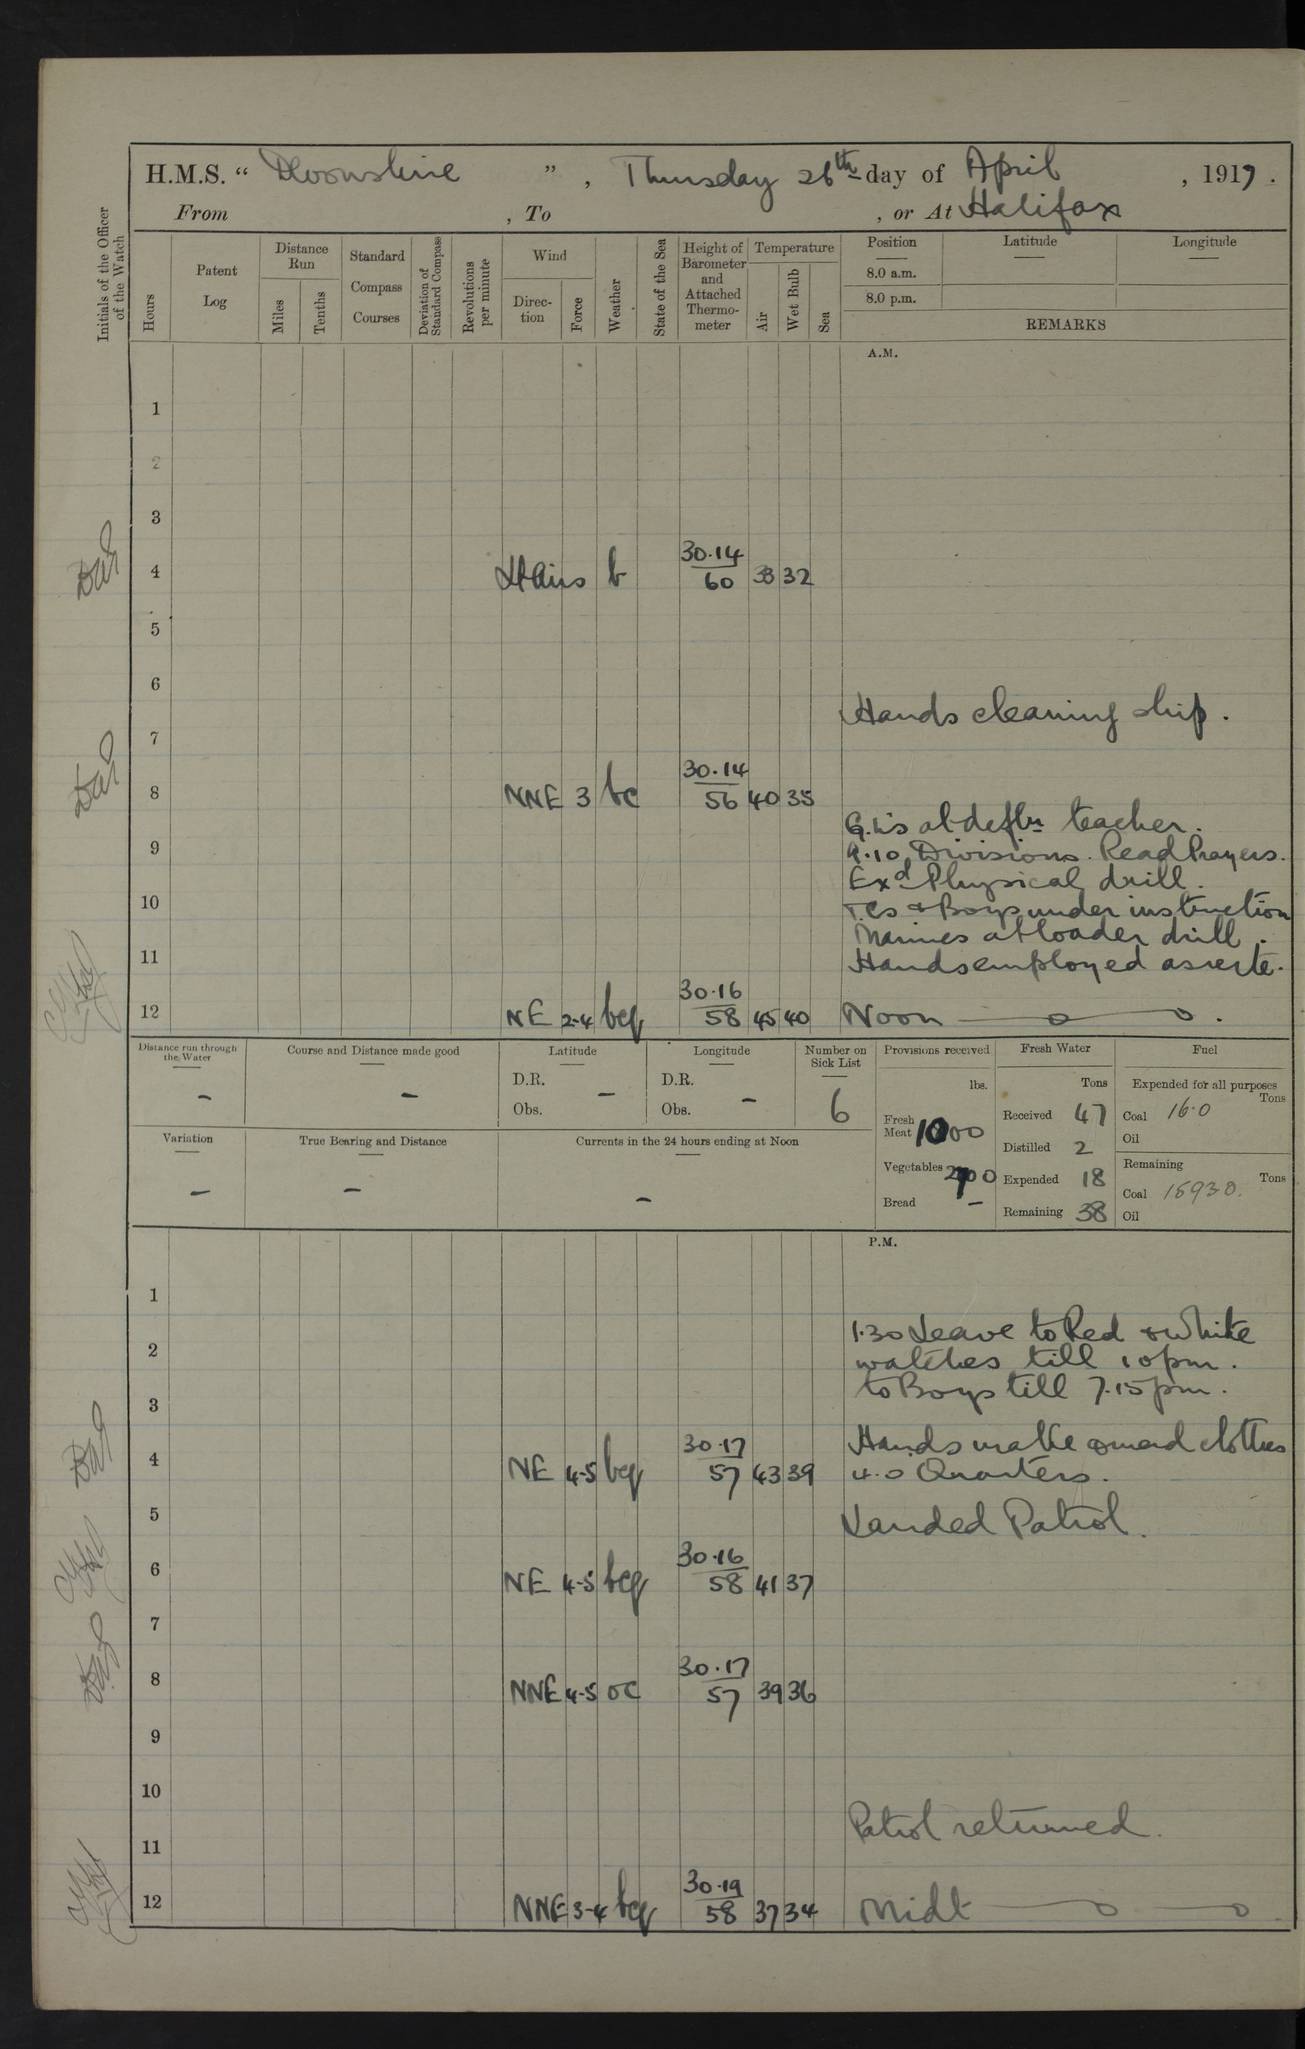 H.M.S. " Devonshire " , Thursday 26th day of April , 1917 .
From , To , or At Halifax
Initials of the Officer of the Watch
Hours
Patent Log
Distance Run
Miles
Tenths
Standard Compass Courses
Deviation of Standard Compass
Revolutions per minute
Wind
Direction
Force
Weather
State of the Sea
Height of Barometer and Attached Thermometer
Temperature
Air
Wet Bulb
Sea
Position Latitude Longitude
8.0 a.m.
8.0 p.m.
REMARKS
A.M.
1
2
3
4 Lt Airs b 30.14 60 33 32
5
6
Hands cleaning ship.
7
8 NNE 3 bc 30.14 56 40 35
G.L's at defln teacher.
9 9.10 Divisions. Read Prayers.
Exd Physical drill.
10 T.Cs & Boys under instruction
Marines at loader drill.
11 Hands employed as reqte.
12 NE 2-4 bcq 30.16 58 45 40 Noon
Distance run through the Water -
Course and Distance made good -
Latitude D.R. Obs. -
Longitude D.R. Obs. -
Number on Sick List 6
Provisions received lbs.
Fresh Meat 1000
Vegetables
Bread -
Fresh Water Tons
Received 47
Distilled 2
Expended 18
Remaining 38
Fuel
Expended for all purposes Tons
Coal 16.0
Oil
Remaining Tons
Coal
Oil
Variation -
True Bearing and Distance -
Currents in the 24 hours ending at Noon -
P.M.
1
1.30 Leave to Red & White
2 watches till 10 pm.
to Boys till 7.15 pm.
3
Hands make & mend clothes
4 NE 4-5 bcq 30.17 57 43 39 4.0 Quarters.
5 Landed Patrol.
6 NE 4-5 bcq 30.16 58 41 37
7
8 NNE 4-5 oc 30.17 57 39 36
9
10
Patrol returned.
11
12 NNE 3-4 bcq 30.19 58 37 34 Midt